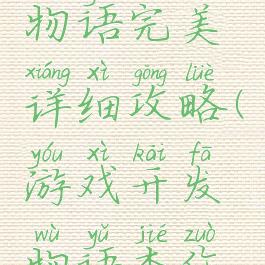 物语完美
xiáng xì gōng lüè
详细攻略(
yóu xì kāi fā
游戏开发
wù yǔ jié zuò